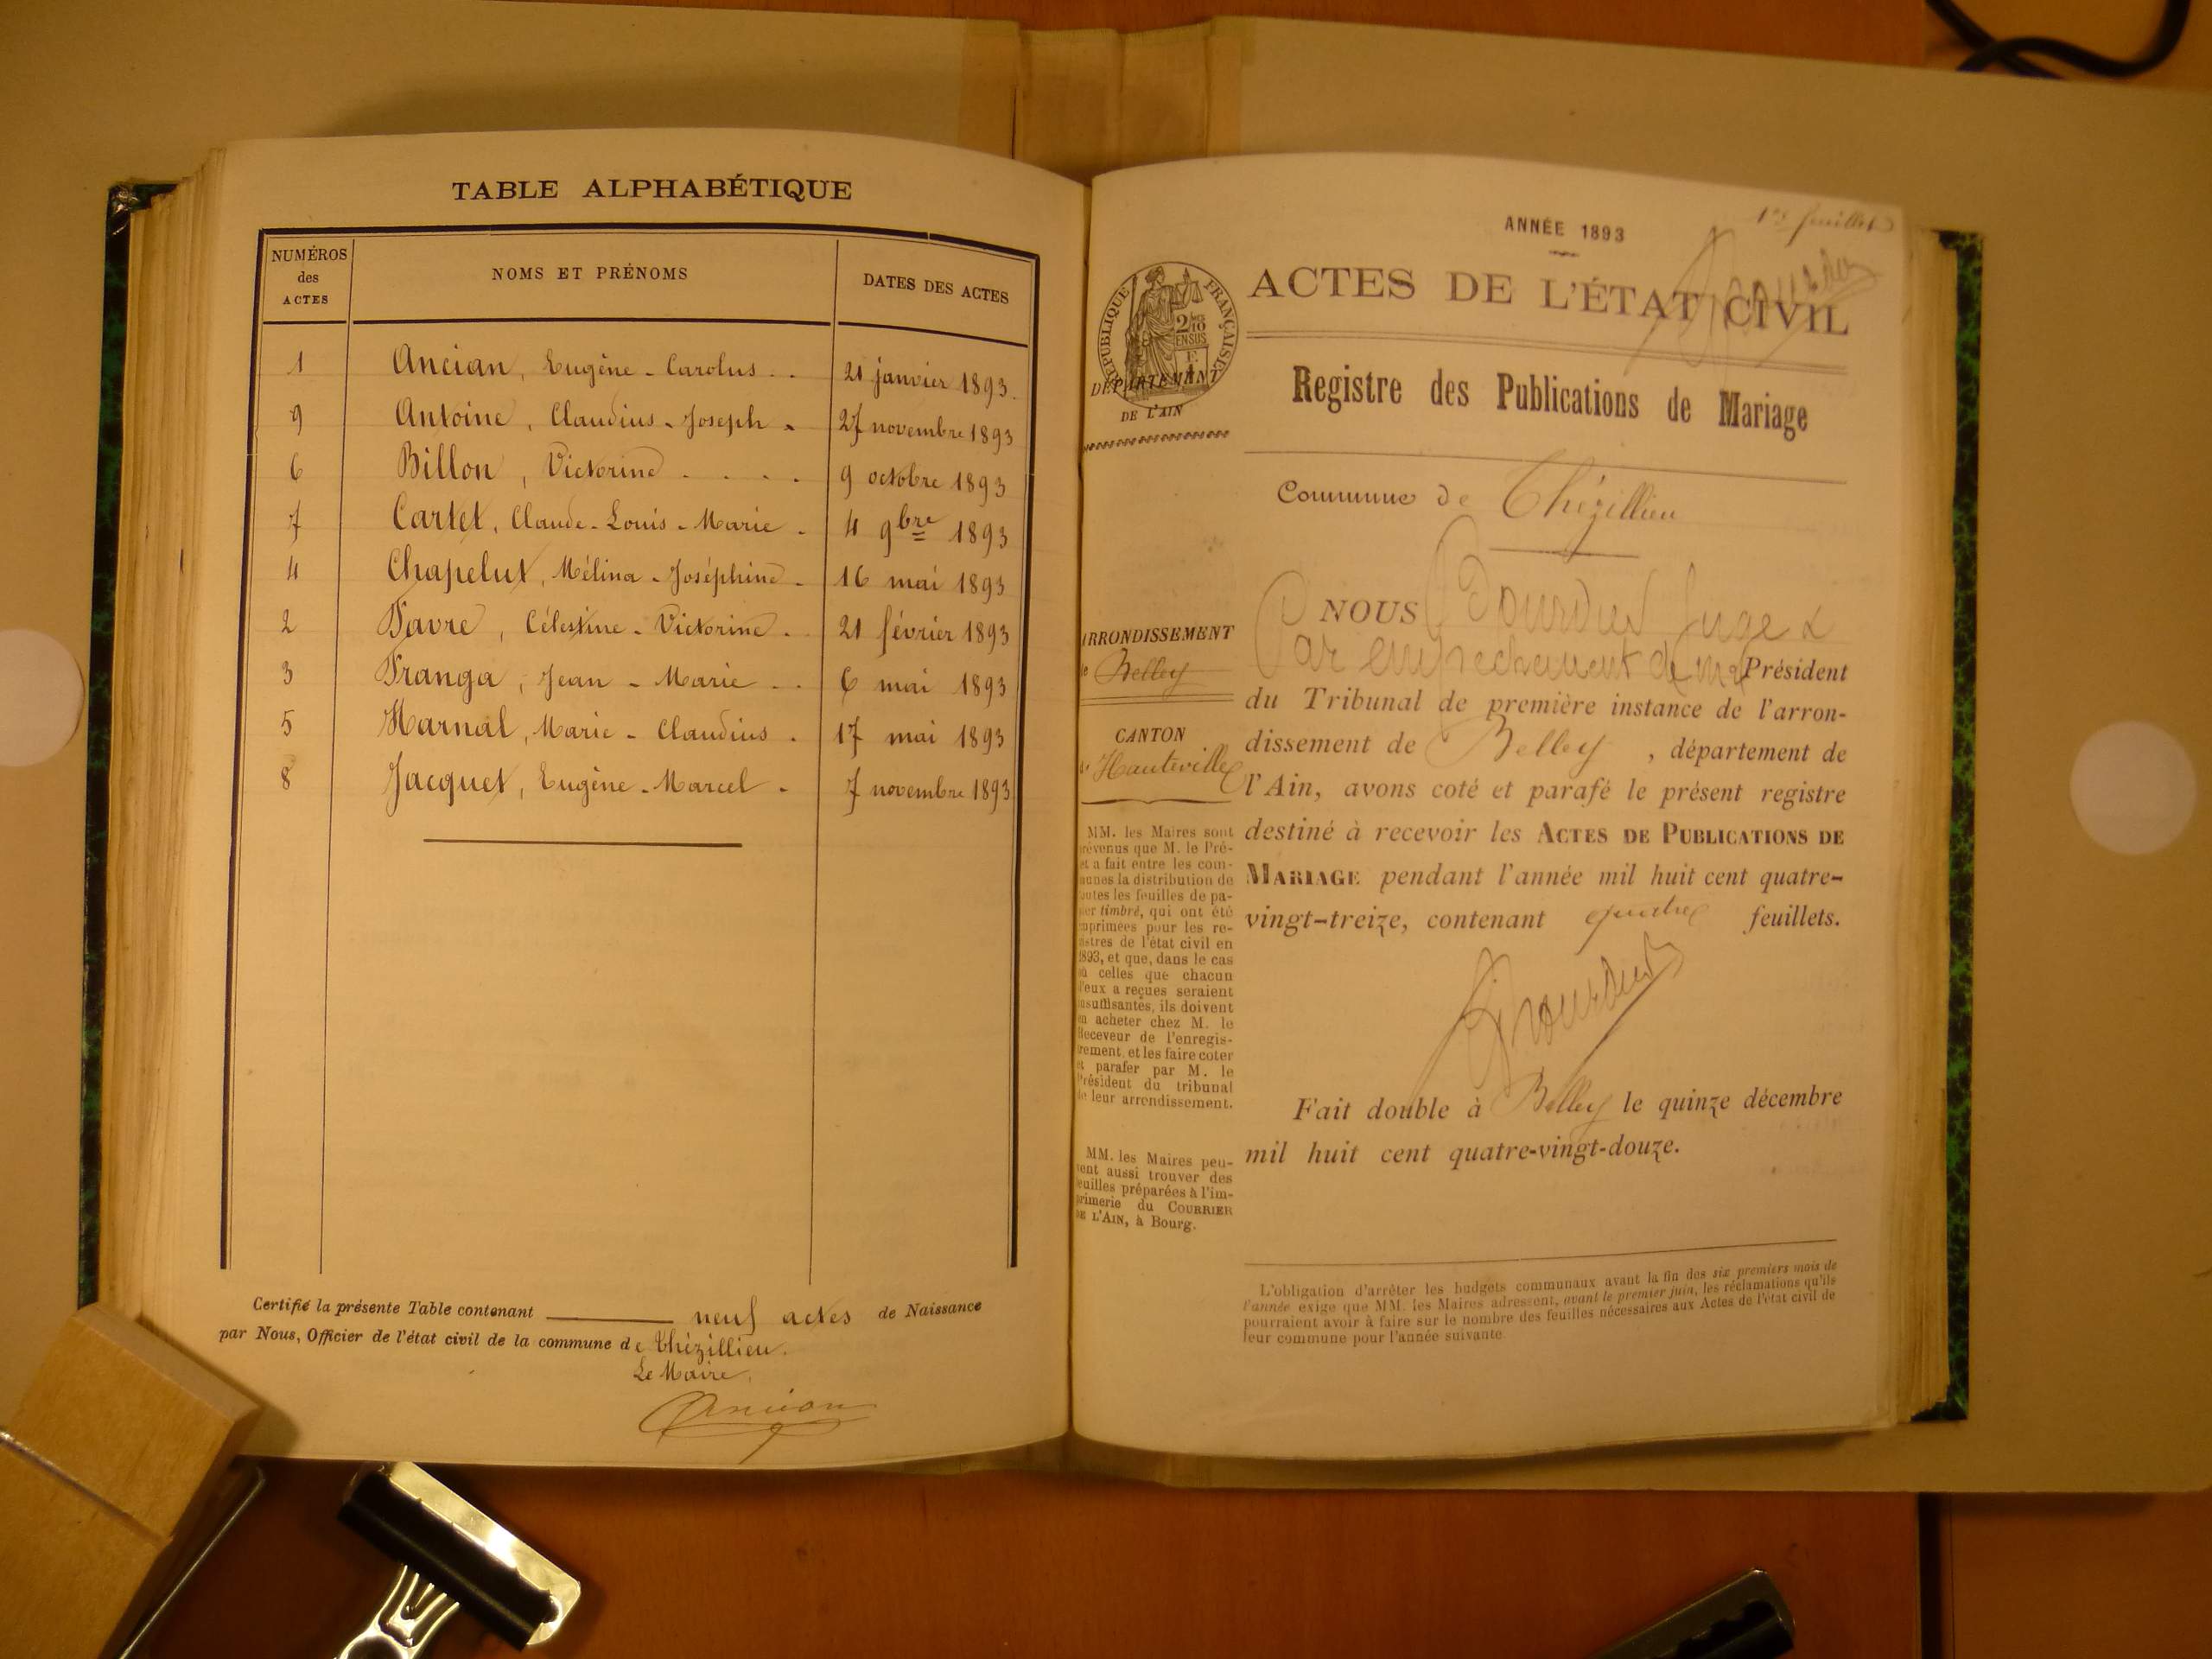 TABLE ALPHABÉTIQUE
NUMÉROS des ACTES
NOMS ET PRÉNOMS
DATES DES ACTES
1 Ancian, Eugène - Carolus . . 21 janvier 1893.
9 Antoine, Claudius - Joseph - 27 novembre 1893
6 Billon, Victorine . . . . 9 octobre 1893
7 Cartet, Claude - Louis - Marie - 4 9bre 1893
4 Chapelut, Mélina - Joséphine - 16 mai 1893
2 Favre, Célestine - Victorine . 21 février 1893
3 Franga, Jean - Marie . . 6 mai 1893
5 Harnal, Marie - Claudius . 17 mai 1893
8 Jacquet, Eugène - Marcel - 7 novembre 1893
Certifié la présente Table contenant neuf actes de Naissance
par Nous, Officier de l'état civil de la commune de Thézillieu.
Le Maire,
Ancian
1er feuillet
ANNÉE 1893
ACTES DE L'ÉTAT CIVIL
RÉPUBLIQUE FRANÇAISE
2/10
EN SUS
DÉPARTEMENT
DE L'AIN
Registre des Publications de Mariage
Commune de Thézillieu
ARRONDISSEMENT
de Belley
CANTON
de Hauteville
MM. les Maires sont
prévenus que M. le Pré-
fet a fait entre les com-
munes la distribution de
toutes les feuilles de pa-
pier timbré, qui ont été
imprimées pour les re-
gistres de l'état civil en
1893, et que, dans le cas
où celles que chacun
d'eux a reçues seraient
insuffisantes, ils doivent
en acheter chez M. le
Receveur de l'enregis-
trement, et les faire coter
et parafer par M. le
Président du tribunal
de leur arrondissement.
MM. les Maires peu-
vent aussi trouver des
feuilles préparées à l'im-
primerie du COURRIER
DE L'AIN, à Bourg.
NOUS Juge
Par empechement de Président
du Tribunal de première instance de l'arron-
dissement de Belley, département de
l'Ain, avons coté et parafé le présent registre
destiné à recevoir les ACTES DE PUBLICATIONS DE
MARIAGE pendant l'année mil huit cent quatre-
vingt-treize, contenant quatre feuillets.
Fait double à Belley le quinze décembre
mil huit cent quatre-vingt-douze.
L'obligation d'arrêter les budgets communaux avant la fin des six premiers mois de
l'année exige que MM. les Maires adressent, avant le premier juin, les réclamations qu'ils
pourraient avoir à faire sur le nombre des feuilles nécessaires aux Actes de l'état civil de
leur commune pour l'année suivante